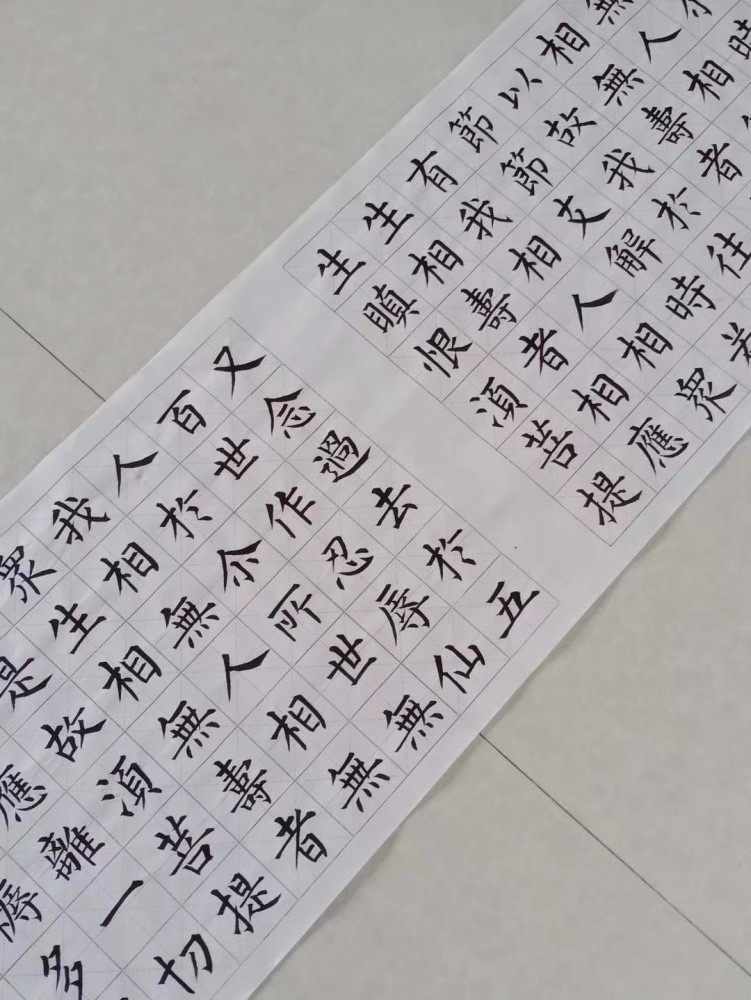 尒時
無人相
相無壽者
以故我於往
節節支解時若
有我相人相眾
生相壽者相應
生瞋恨須菩提
又念過去於五
百世作忍辱仙
人於尒所世無
我相無人相無
眾生相無壽者
是故須菩提
應離一切
耨多